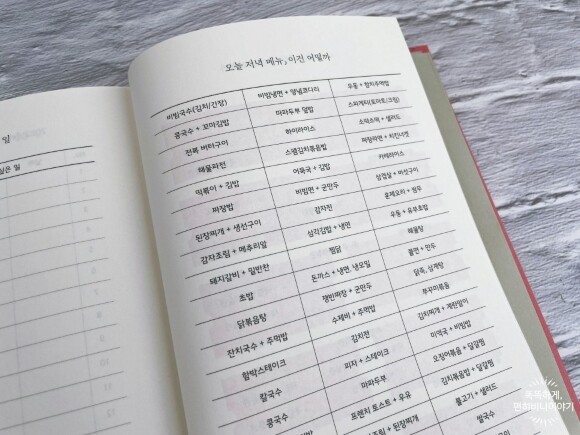 오늘 저녁 메뉴, 이건 어떨까
비빔국수(김치/간장) 비빔냉면 + 양념코다리 우동 + 참치주먹밥
콩국수 + 꼬마김밥 마파두부 덮밥 스파게티(토마토/크림)
전복 버터구이 하이라이스 소떡소떡 + 샐러드
해물파전 스팸김치볶음밥 짜장라면 + 치킨너겟
떡볶이 + 김밥 어묵국 + 김밥 카레라이스
짜장밥 비빔면 + 군만두 삼겹살 + 버섯구이
된장찌개 + 생선구이 감자전 훈제오리 + 쌈무
감자조림 + 메추리알 삼각김밥 + 냉면 우동 + 유부초밥
돼지갈비 + 밑반찬 찜닭 해물탕
초밥 돈까스 + 냉면, 냉모밀 쫄면 + 만두
닭볶음탕 쟁반짜장 + 군만두 닭죽, 삼계탕
잔치국수 + 주먹밥 수제비 + 주먹밥 쭈꾸미볶음
함박스테이크 김치전 김치찌개 + 계란말이
칼국수 피자 + 스테이크 미역국 + 비빔밥
콩국수 마파두부 오징어볶음 + 달걀찜
프렌치 토스트 + 우유 김치볶음밥 + 달걀찜
+ 된장찌개 불고기 + 샐러드
쌀국수
일
싶은 일
11
12
똑똑하게,
편히비니이야기